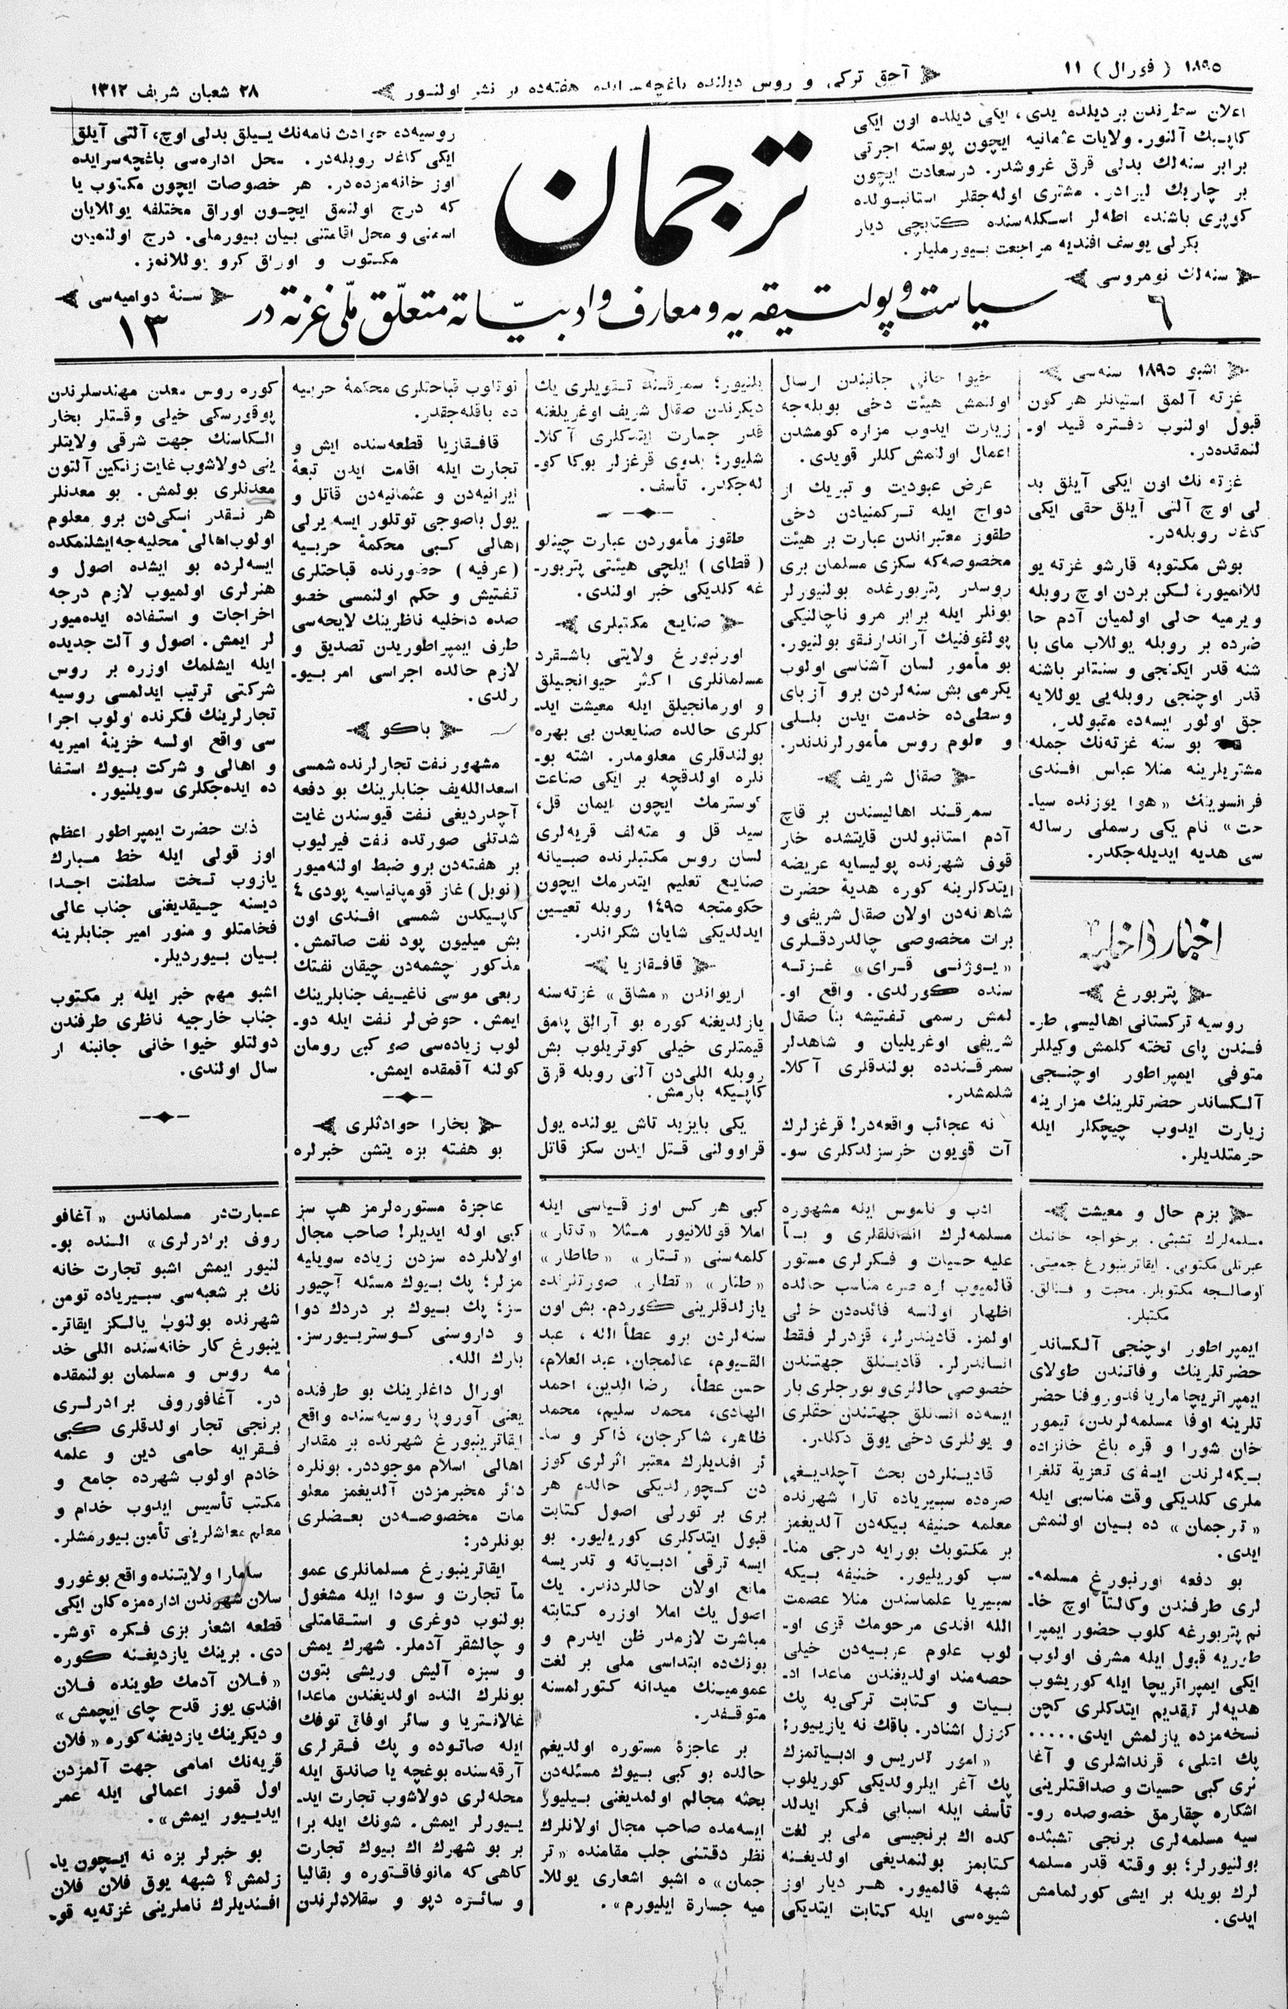 ١٨٩٥ ( فورال ) ١١
آچق تركی و روس دیلنده باغچه‌سرایده هفته‌ده بر نشر اولنور
٢٨ شعبان شریف ١٣١٢
اعلان سطرندن بر دیلده یدی، ایكی دیلده اون ایكی
كاپیك آلنور. ولایات عثمانیه ایچون پوسته اجرتی
برابر سنه‌لك بدلی قرق غروشدر. درسعادت ایچون
بر چاریك لیرادر. مشتری اوله‌جقلر استانبولده
كوپری باشنده اطه‌لر اسكله‌سنده كتابچی دیار
بكرلی یوسف افندیه مراجعت بیورملیلر.
سنه‌لك نومروسی
٦
ترجمان
سیاست و پولتیقه‌یه و معارف و ادبیاته متعلق ملی غزته در
روسیه‌ده حوادث نامه‌نك ییلیق بدلی اوچ، آلتی آیلق
ایكی كاغد روبله‌در. محل اداره‌سی باغچه سرایده
اوز خانه‌مزده‌در. هر خصوصات ایچون مكتوب یا
كه درج اولنمق ایچون اوراق مختلفه یوللایان
اسمنی و محل اقامتنی بیان بیورملی. درج اولنمیان
مكتوب و اوراق كرو یوللانمز.
سنهٔ دوامیه‌سی
١٣
اشبو ١٨٩٥ سنه‌سی
غزته آلمق استیانلر هر كون
قبول اولنوب دفتره قید او-
لنمقده‌در.
غزته نك اون ایكی آیلق بد
لی اوچ آلتی آیلق حقی ایكی
كاغد روبله‌در.
بوش مكتوبه قارشو غزته یو
للانمیور، لكن بردن اوچ روبله
ویرمیه حالی اولمیان آدم حا
ضرده بر روبله یوللاب مای با
شنه قدر ایكنجی و سنتابر باشنه
قدر اوچنجی روبله‌یی یوللایه
جق اولور ایسه‌ده مقبولدر.
بو سنه غزته‌نك جمله
مشتریلرینه منلا عباس افندی
فرانسوینك «هوا یوزنده سیا-
حت» نام یكی رسملی رساله
سی هدیه ایدیله‌جكدر.
اخبار داخلیه
پتربورغ
روسیه تركستانی اهالیسی طر-
فندن پای تخته كلمش وكیللر
متوفی ایمپراطور اوچنجی
آلكساندر حضرتلرینك مزارینه
زیارت ایدوب چیچكلر ایله
حرمتلدیلر.
خیوا خانی جانبندن ارسال
اولنمش هیئت دخی بویله‌جه
زیارت ایدوب مزاره كومشدن
اعمال اولنمش كللر قویدی.
عرض عبودیت و تبریك از
دواج ایله تركمنیادن دخی
طقوز معتبراندن عبارت بر هیئت
مخصوصه‌كه سكزی مسلمان بری
روسدر پتربورغده بولنیورلر
بونلر ایله برابر مرو ناچالنیكی
پولقوفنیك آراندارنقو بولنیور.
بو مأمور لسان آشناسی اولوب
یكرمی بش سنه‌لردن برو آزیای
وسطی‌ده خدمت ایدن بللی
و معلوم روس مأمورلرندندر.
صقال شریف
سمرقند اهالیسندن بر قاچ
آدم استانبولدن قایتشده خار
قوف شهرنده پولیسایه عریضه
ایتدكلرینه كوره هدیهٔ حضرت
شاهانه‌دن اولان صقال شریفی و
برات مخصوصی چالدردقلری
«یوژنی قرای» غزته
سنده كورلدی. واقع او-
لمش رسمی تفتیشه بنا صقال
شریفی اوغریلیان و شاهدلر
سمرقندده بولندقلری آكلا-
شلمشدر.
نه عجائب واقعه‌در! قرغزلرك
آت قویون خرسزلدكلری سو-
یلنیور؛ سمرقندك تقویلری یك
دیكرندن صقال شریف اوغریلغنه
قدر جسارت ایتدكلری آكلا-
شلیور؛ بدوی قرغزلر بوكا كو-
له‌جكدر. تأسف.
طقوز مأموردن عبارت چینلو
(قطای) ایلچی هیئتی پتربور-
غه كلدیكی خبر اولندی.
صنایع مكتبلری
اورنبورغ ولایتی باشقرد
مسلمانلری اكثر حیوانجیلق
و اورمانجیلق ایله معیشت اید-
كلری حالده صنایعدن بی بهره
بولندقلری معلومدر. اشته بو-
نلره اولدقچه بر ایكی صناعت
كوسترمك ایچون ایمان قل،
سید قل و مته‌لف قریه‌لری
لسان روس مكتبلرنده صبیانه
صنایع تعلیم ایتدرمك ایچون
حكومتجه ١٤٩٥ روبله تعیین
ایدلدیكی شایان شكراندر.
قافقازیا
اریواندن «مشاق» غزته‌سنه
یازلدیغنه كوره بو آرالق پامق
قیمتلری خیلی كوتریلوب بش
روبله اللی‌دن آلتی روبله قرق
كاپیكه بارمش.
یكی بایزید تاش یولنده یول
قراوولنی قتل ایدن سكز قاتل
توتلوب قباحتلری محكمهٔ حربیه
ده باقله‌جقدر.
قافقازیا قطعه‌سنده ایش و
تجارت ایله اقامت ایدن تبعهٔ
ایرانیه‌دن و عثمانیه‌دن قاتل و
یول باصوجی توتلور ایسه یرلی
اهالی كبی محكمهٔ حربیه
(عرفیه) حضورنده قباحتلری
تفتیش و حكم اولنمسی خصو
صده داخلیه ناظرینك لایحه‌سی
طرف ایمپراطوریدن تصدیق و
لازم حالده اجراسی امر بیو-
رلدی.
باكو
مشهور نفت تجارلرنده شمسی
اسعدالله‌یف جنابلرینك بو دفعه
آچدردیغی نفت قیوسندن غایت
شدتلی صورتده نفت فیرلیوب
بر هفته‌دن برو ضبط اولنه‌میور
(نوبل) غاز قومپانیاسیه پودی ٤
كاپیكدن شمسی افندی اون
بش میلیون پود نفت صاتمش.
مذكور چشمه‌دن چیقان نفتك
ربعی موسی ناغییف جنابلرینك
ایمش. حوض‌لر نفت ایله دو-
لوب زیاده‌سی صو كبی رومان
كولنه آقمقده ایمش.
بخارا حوادثلری
بو هفته بزه یتشن خبرلره
كوره روس معدن مهندسلرندن
پوقورسكی خیلی وقتلر بخار
الكاسنك جهت شرقی ولایتلر
ینی دولاشوب غایت زنكین آلتون
معدنلری بولمش. بو معدنلر
هر نقدر اسكی‌دن برو معلوم
اولوب اهالیٔ محلیه‌جه ایشلنمكده
ایسه‌لرده بو ایشده اصول و
هنرلری اولمیوب لازم درجه
اخراجات و استفاده ایده‌میور
لر ایمش. اصول و آلت جدیده
ایله ایشلمك اوزره بر روس
شركتی ترتیب ایدلمسی روسیه
تجارلرینك فكرنده اولوب اجرا
سی واقع اولسه خزینهٔ امیریه
و اهالی و شركت بیوك استفا
ده ایده‌جكلری سویلنیور.
ذات حضرت ایمپراطور اعظم
اوز قولی ایله خط مبارك
یازوب تخت سلطنت اجدا
دیسنه چیقدیغنی جناب عالی
فخامتلو و منور امیر جنابلرینه
بیان بیوردیلر.
اشبو مهم خبر ایله بر مكتوب
جناب خارجیه ناظری طرفندن
دولتلو خیوا خانی جانبنه ار
سال اولندی.
بزم حال و معیشت
مسلمه‌لرك تشبثی. برخواجه خانمك
عبرتلی مكتوبی. ایقاترینبورغ جمعیتی.
اوصالجه مكتوبلر. محبت و فنالق.
مكتبلر.
ایمپراطور اوچنجی آلكساندر
حضرتلرینك وفاتندن طولای
ایمپراتریچا ماریا فدوروفنا حضر
تلرینه اوفا مسلمه‌لرندن، تیمور
خان شورا و قره باغ خانزاده
بیكه‌لرندن ایفای تعزیهٔ تلغرا
ملری كلدیكی وقت مناسبی ایله
«ترجمان» ده بیان اولنمش
ایدی.
بو دفعه اورنبورغ مسلمه-
لری طرفندن وكالتاً اوچ خا-
نم پتربورغه كلوب حضور ایمپرا
طوریه قبول ایله مشرف اولوب
ایكی ایمپراتریچا ایله كوریشوب
هدیه‌لر تقدیم ایتدكلری كچن
نسخه‌مزده یازلمش ایدی.....
پك اتنلی، قرنداشلری و آغا
لری كبی حسیات و صداقتلرینی
اشكاره چقارمق خصوصده رو-
سیه مسلمه‌لری برنجی تشبثده
بولنیورلر؛ بو وقته قدر مسلمه
لرك بویله بر ایشی كورلمامش
ایدی.
ادب و ناموس ایله مشهوره
مسلمه‌لرك انسانلقلری و بنا
علیه حسیات و فكرلری مستور
قالمیوب اره صره مناسب حالده
اظهار اولنسه فائده‌دن خالی
اولمز. قادیندرلر، قزدرلر فقط
انساندرلر. قادینلق جهتندن
خصوصی حاللری و بورجلری بار
ایسه‌ده انسانلق جهتندن حقلری
و یوللری دخی یوق دكلدر.
قادینلردن بحث آچلدیغی
صره‌ده سبیریاده تارا شهرنده
معلمه حنیفه بیكه‌دن آلدیغمز
بر مكتوبك بورایه درجی منا-
سب كوریلیور. حنیفه بیكه
سبیریا علماسندن منلا عصمت
الله افندی مرحومك قزی او-
لوب علوم عربیه‌دن خیلی
حصه‌مند اولدیغندن ماعدا اد-
بیات و كتابت تركی‌یه پك
كوزل اشنادر. باقك نه یازییور:
«امور تدریس و ادبیاتمزك
پك آغر ایلرولدیكی كوریلوب
تأسف ایله اسبابی فكر ایدلد
كده اك برنجیسی ملی بر لغت
كتابمز بولنمدیغی اولدیغنه
شبهه قالمیور. هر دیار اوز
شیوه‌سی ایله كتابت ایتدیكی
كبی هر كس اوز قیاسی ایله
املا قوللانیور مثلا «تاتار»
كلمه‌سنی «تتار» «طاطار»
«طتار» «تطار» صورتلرنده
یازلدقلرینی كوردم. بش اون
سنه‌لردن برو عطأ الله، عبد
القیوم، عالمجان، عبد العلام،
حسن عطأ، رضا الدین، احمد
الهادی، محمد سلیم، محمد
ظاهر، شاكرجان، ذاكر و سا-
ئر افندیلرك معتبر اثرلری كوز
دن كچورلدیكی حالده هر
بری بر تورلی اصول كتابت
قبول ایتدكلری كوریلیور. بو
ایسه ترقیٔ ادبیاته و تدریسه
مانع اولان حاللردندر. یك
اصول یك املا اوزره كتابته
مباشرت لازمدر ظن ایدرم و
بونك‌ده ابتداسی ملی بر لغت
عمومینك میدانه كتورلمسنه
متوقفدر.
بر عاجزهٔ مستوره اولدیغم
حالده بو كبی بیوك مسئله‌دن
بحثه مجالم اولمدیغنی بیلیور
ایسه‌مده صاحب مجال اولانلرك
نظر دقتنی جلب مقامنده «تر
جمان» ه اشبو اشعاری یوللا-
میه جسارة ایلیورم».
عاجزهٔ مستوره‌لرمز هپ سز
كبی اوله ایدیلر! صاحب مجال
اولانلرده سزدن زیاده سویلیه
مزلر؛ پك بیوك مسئله آچیور
سز؛ پك بیوك بر دردك دوا
و داروسنی كوستریورسز.
بارك الله.
اورال داغلرینك بو طرفنده
یعنی آوروپا روسیه‌سنده واقع
ایقاترینبورغ شهرنده بر مقدار
اهالیٔ اسلام موجوددر. بونلره
دائر مخبرمزدن آلدیغمز معلو
مات مخصوصه‌دن بعضلری
بونلردر:
ایقاترینبورغ مسلمانلری عمو
ماً تجارت و سودا ایله مشغول
بولنوب دوغری و استقامتلی
و چالشقر آدملر. شهرك یمش
و سبزه آلیش وریشی بتون
بونلرك النده اولدیغندن ماعدا
غالانتریا و سائر اوفاق توفك
ایله صاتوده و پك فقرلری
آرقه‌سنده بوغچه یا صاندق ایله
محله‌لری دولاشوب تجارت اید-
ییورلر ایمش. شونك ایله برا
بر بو شهرك اك بیوك تجارت
كاهی كه مانوفاقتوره و بقالیا
و سائره دپو و سقلادلرندن
عبارت‌در مسلماندن «آغافو
روف برادرلری» النده بو-
لنیور ایمش اشبو تجارت خانه
نك بر شعبه‌سی سبیریاده تومن
شهرنده بولنوب یالكز ایقاتر-
ینبورغ كار خانه‌سنده اللی خد
مه روس و مسلمان بولنمقده
در. آغافوروف برادرلری
برنجی تجار اولدقلری كبی
فقرایه حامی دین و علمه
خادم اولوب شهرده جامع و
مكتب تأسیس ایدوب خدام و
معلم معاشلرینی تأمین بیورمشلر.
سامارا ولایتنده واقع بوغورو
سلان شهرندن اداره‌مزه كلن ایكی
قطعه اشعار بزی فكره توشر-
دی. برینك یازدیغنه كوره
«فلان آدمك طوینده فلان
افندی یوز قدح چای ایچمش»
و دیكرینك یازدیغنه كوره «فلان
قریه‌نك امامی جهت آلمزدن
اول قموز اعمالی ایله عمر
ایدیور ایمش».
بو خبرلر بزه نه ایچون یا-
زلمش؟ شبهه یوق فلان فلان
افندیلرك ناملرینی غزته‌یه قو-